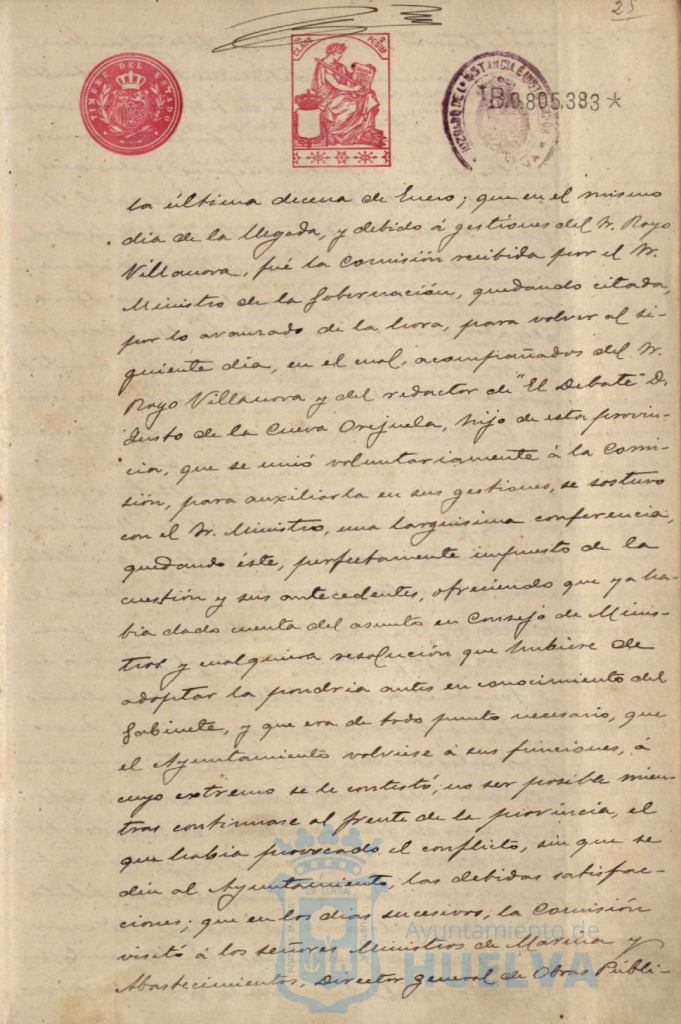 25
CLASE
TIMBRE DEL ESTADO
JUZGADO DE 1ª INSTANCIA É INSTRUCCIÓN
B.0.805,383 *
la última decena de Enero; que en el mismo
dia de la llegada, y debido á gestiones del Sr. Royo
Villanova, fué la Comisión recibida por el Sr.
Ministro de la Gobernación, quedando citada,
por lo avanzado de la hora, para volver al si-
guiente dia, en el cual, acompañados del Sr.
Royo Villanova y del redactor de "El Debate" D.
Justo de la Cueva Orejuela, hijo de esta provin-
cia, que se unió voluntariamente á la Comi-
sión, para auxiliarla en sus gestiones, se sostuvo
con el Sr. Ministro, una larguisima conferencia,
quedando éste, perfectamente impuesto de la
cuestión y sus antecedentes, ofreciendo que ya ha-
bia dado cuenta del asunto en Consejo de Minis-
tros y cualquiera resolución que hubiese de
adoptar la pondria antes en conocimiento del
Gabinete, y que era de todo punto necesario, que
el Ayuntamiento volviese á sus funciones, á
cuyo extremo se le contestó, no ser posible mien-
tras continuase al frente de la provincia, el
que habia provocado el conflicto, sin que se
dén al Ayuntamiento, las debidas satisfac-
ciones; que en los dias sucesivos, la Comisión
visitó á los señores Ministros de Marina y
Abastecimientos, Director general de Obras Públi-
Ayuntamiento de
HUELVA